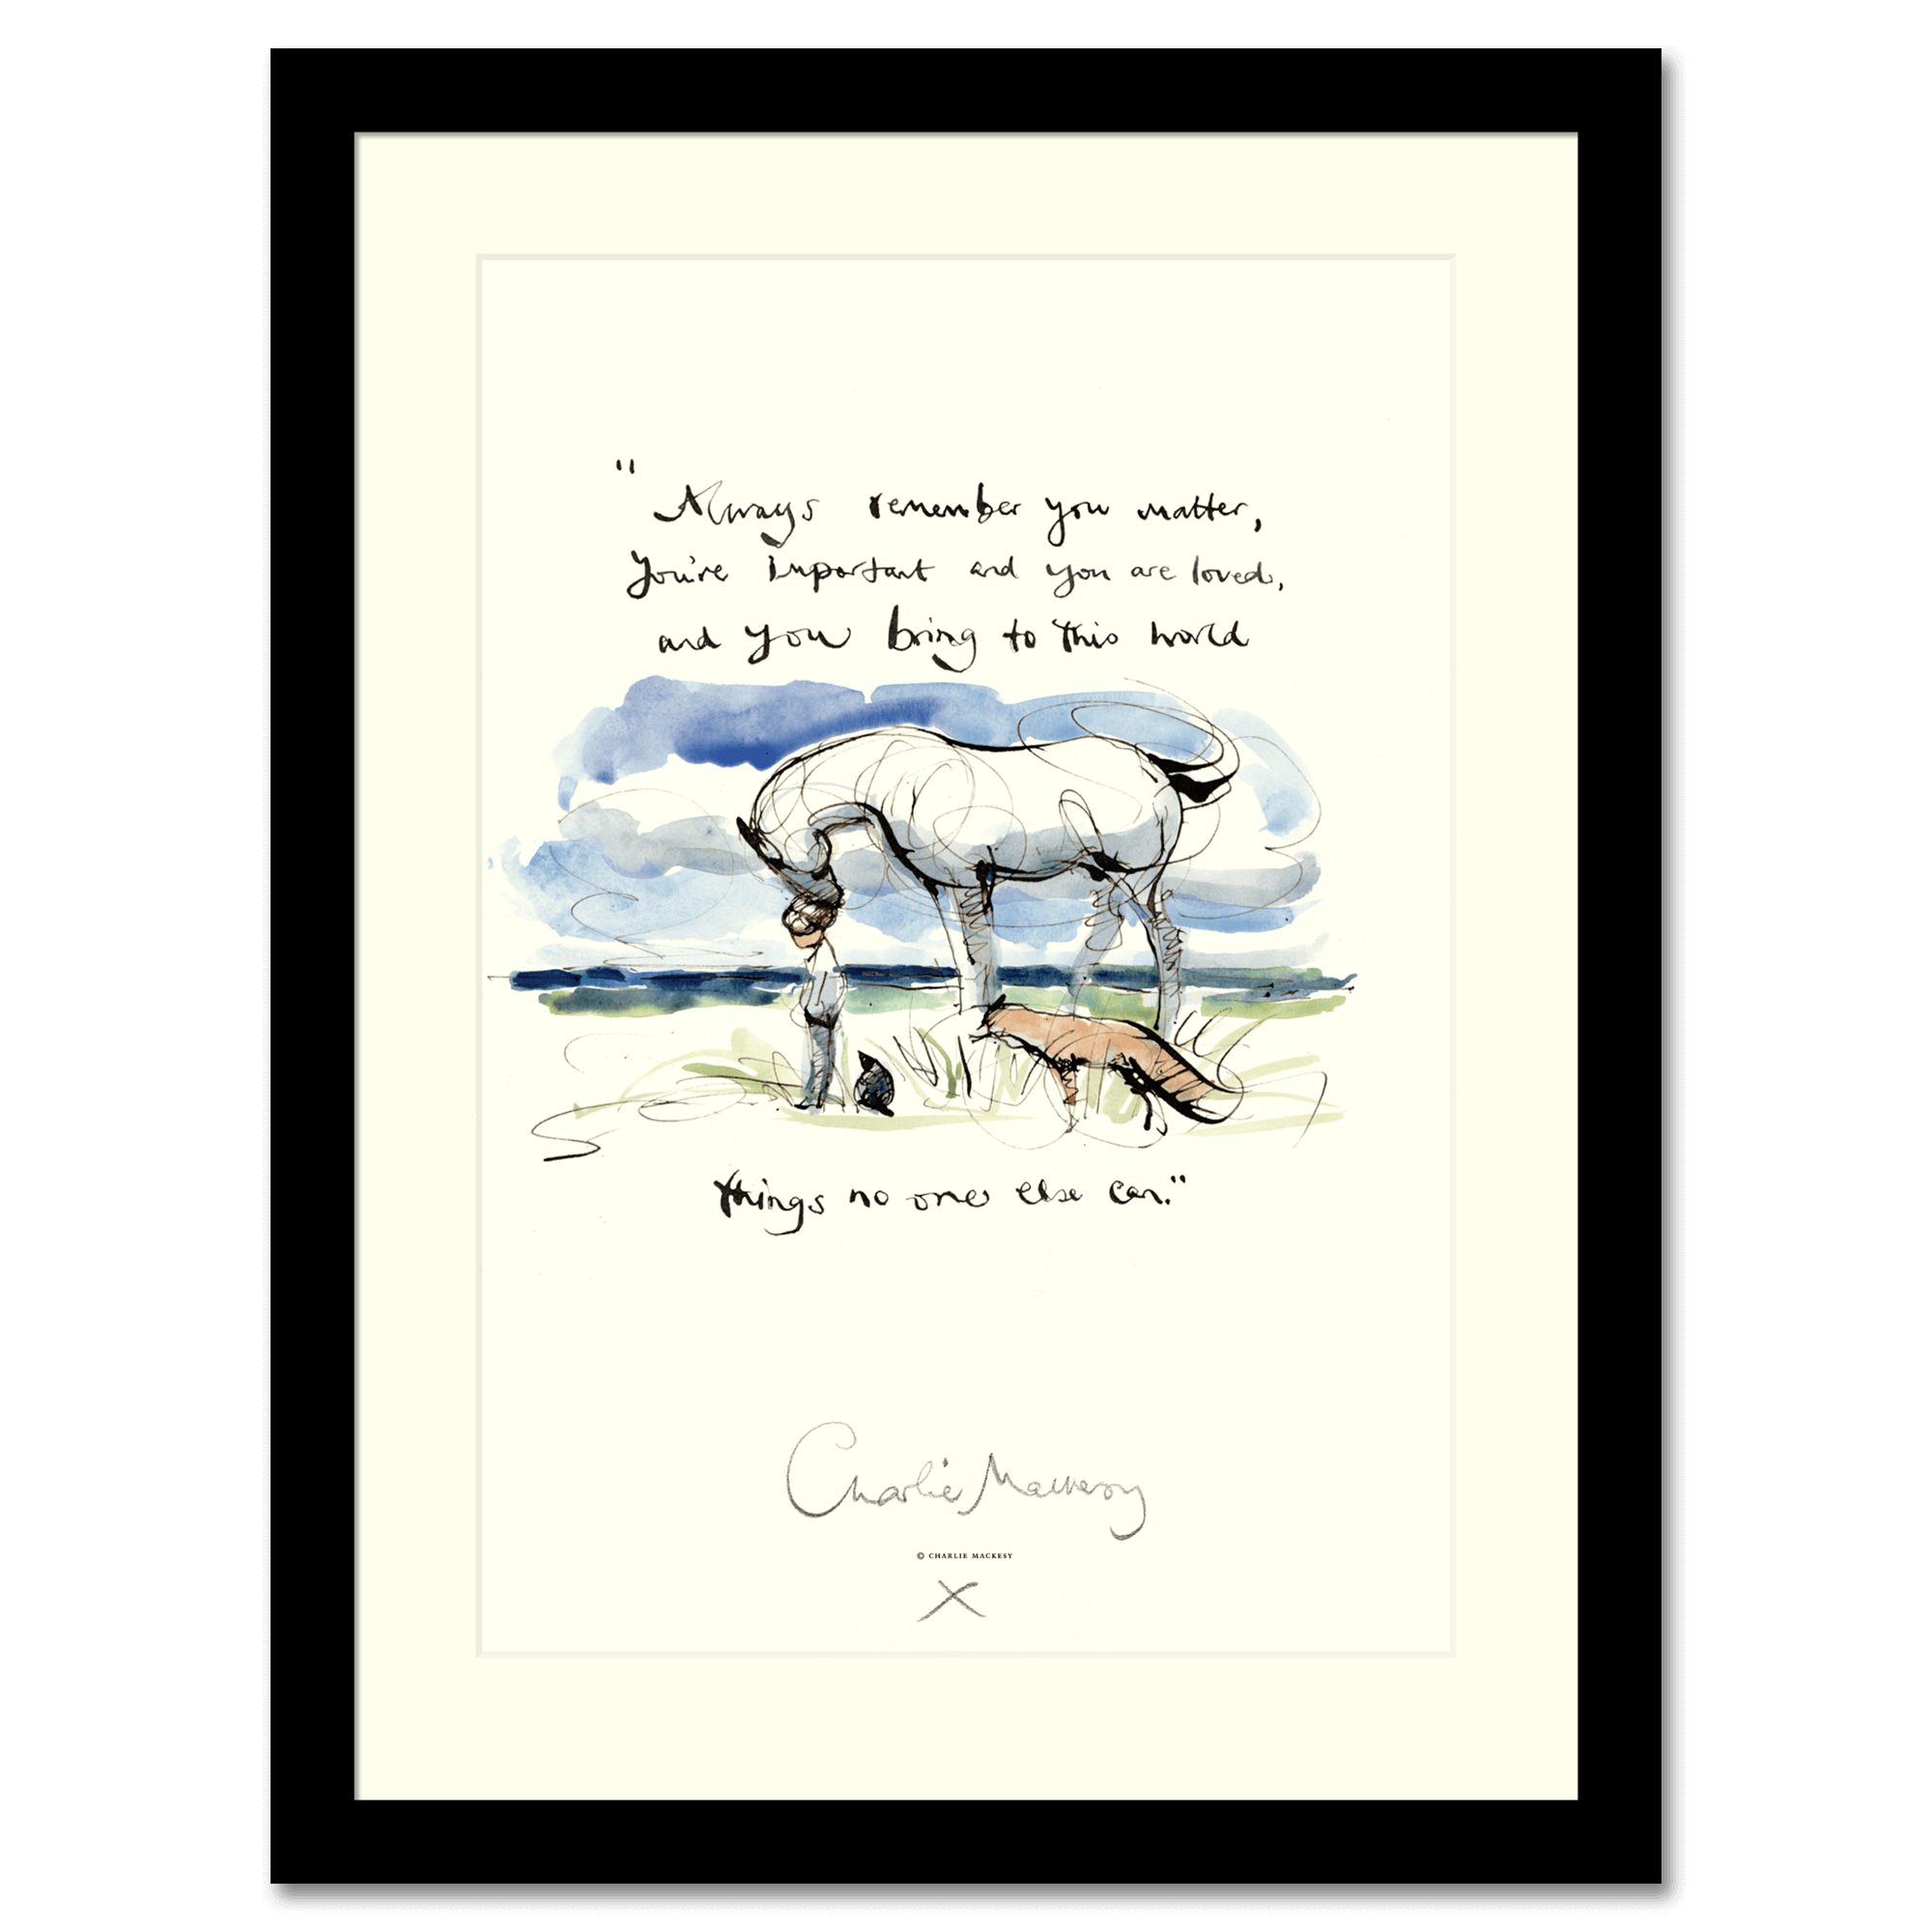 "Always remember you matter,
you're important and you are loved,
and you bring to this world
things no one else can."
Charlie Mackesy
© CHARLIE MACKESY
X